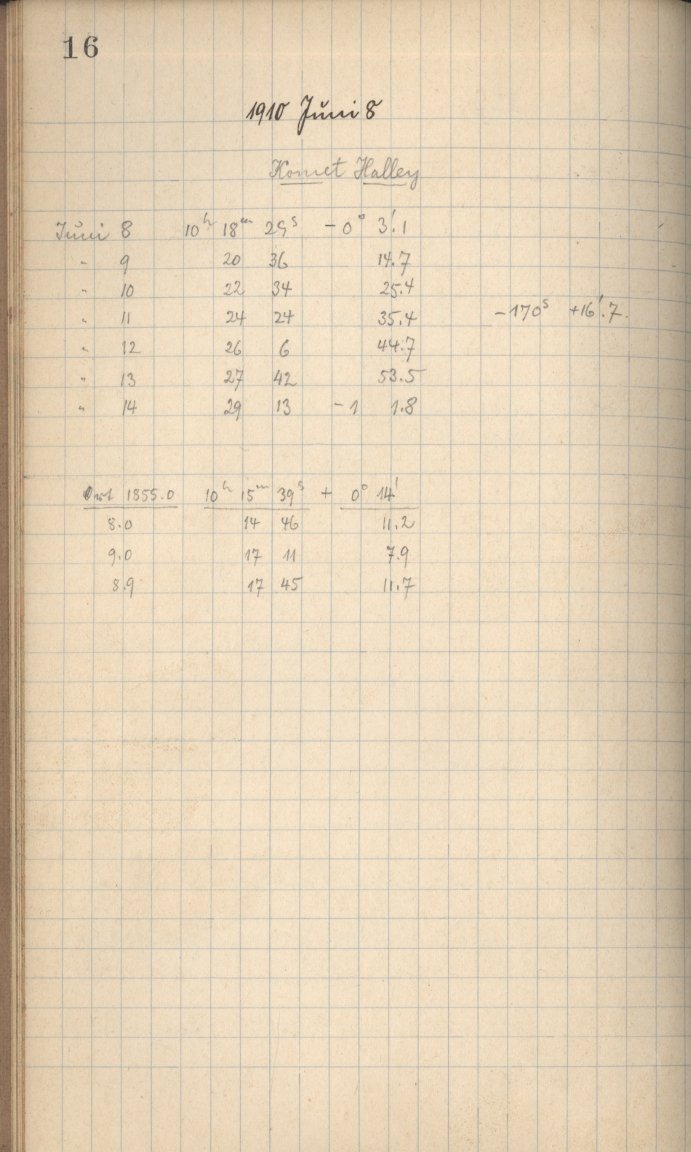 16
1910 Juni 8
Komet Halley
Juni 8 10h 18m 29s − 0° 3'.1
" 9 20 36 14.7
" 10 22 34 25.4
" 11 24 24 35.4 −170s +16'.7.
" 12 26 6 44.7
" 13 27 42 53.5
" 14 29 13 −1 1.8
Ort 1855.0 10h 15m 39s + 0° 14'
8.0 14 46 11.2
9.0 17 11 7.9
8.9 17 45 11.7